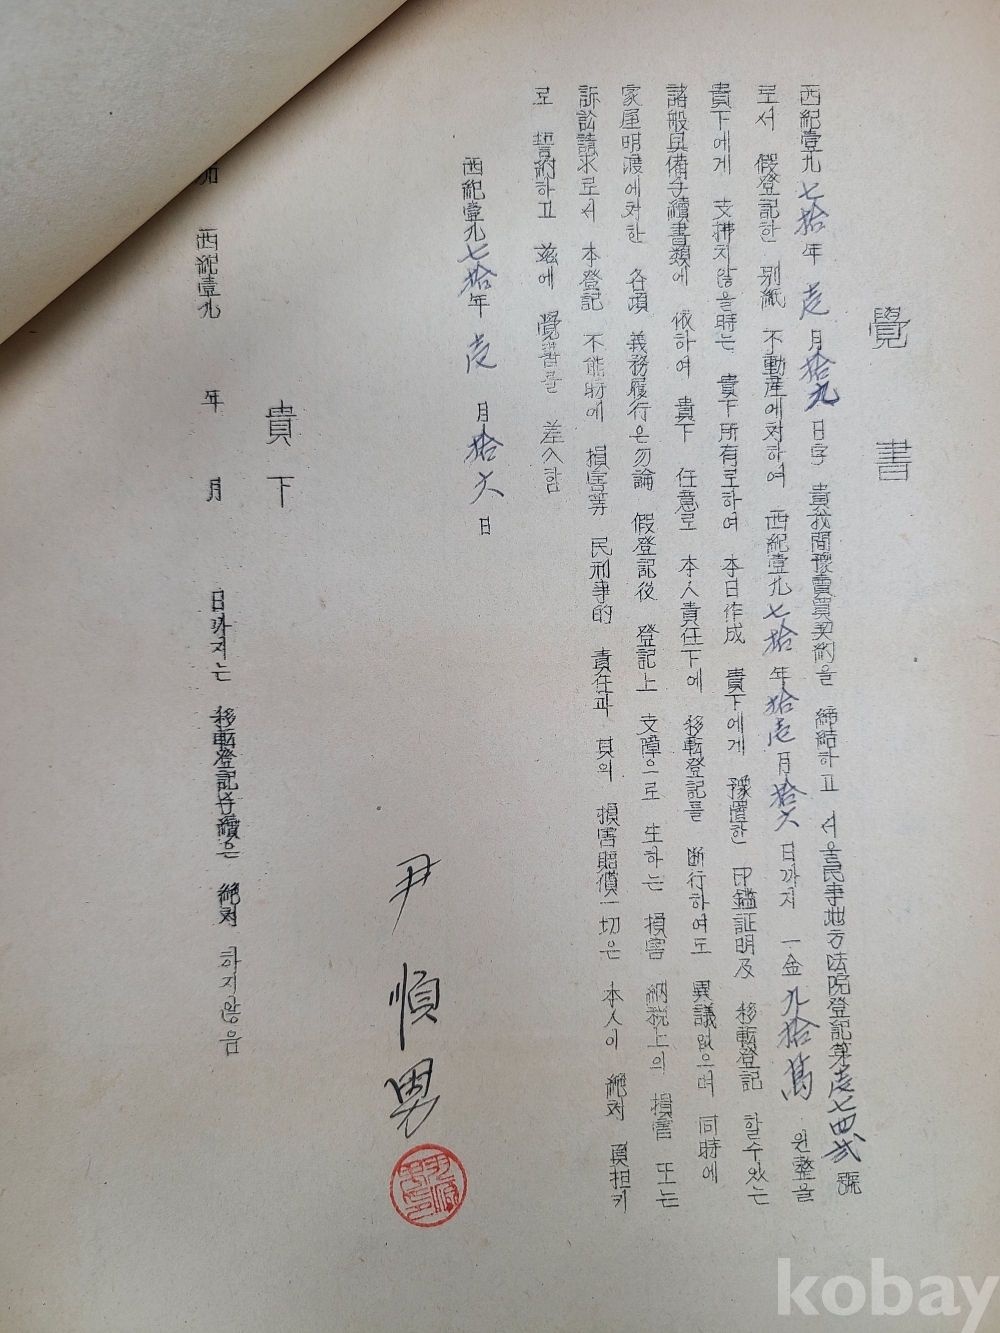 覺書
西紀壹九七拾年 壱月拾九日字 貴我間豫賣買契約을 締結하고 서울民事地方法院登記第壱七四弐號
로서 假登記한 別紙 不動産에対하여 西紀壹九七拾年拾壱月拾六日까지 一金九拾萬 원整을
貴下에게 支拂치않을時는 貴下所有로하여 本日作成 貴下에게 豫置한 印鑑証明及 移転登記 할수있는
諸般具備手續書類에 依하여 貴下 任意로 本人責任下에 移転登記를 断行하여도 異議없으며 同時에
家屋明渡에対한 各項 義務履行은勿論 假登記後 登記上 支障으로 生하는 損害 納税上의 損害 또는
訴訟請求로서 本登記 不能時에 損害等 民刑事的 責任과 其의 損害賠償一切은 本人이 絶対 負担키
로 誓約하고 玆에 覺書를 差入함
西紀壹九七拾年 壱月拾六日
尹順男
貴下
西紀壹九 年 月 日까지는 移転登記手續은 絶対 하지않음
kobay